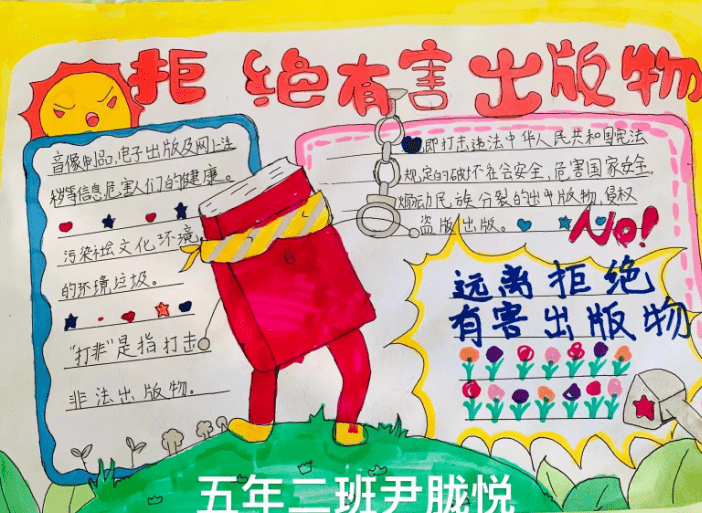 拒绝有害出版物
音像制品,电子出版及网上淫
秽等信息危害人们的健康。
污染社会文化环境
的环境垃圾。
"打非"是指打击
非法出版物。
即打击违法中华人民共和国宪法
规定的破坏社会安全,危害国家安全,
煽动民族分裂的出版物,侵权
盗版出版。
No!
远离拒绝
有害出版物
五年二班尹胧悦